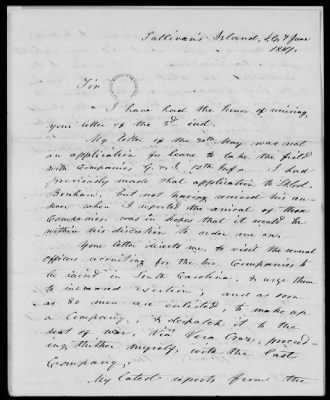 Sullivan's Island, S.C. 7 June
1847.
Sir
I have had the honor of receiving,
your letter of the 3d inst.
My letter of the 30th May was not
an application for leave to take the field
with Companies G. & I. 12th Infy. I had
previously made that application to
Bonham; but not having received his an-
swer when I reported the arrival of those
Companies was in hopes that it would be
within his discretion to order me on.
Your letter directs me, to visit the several
officers recruiting for the two Companies to
be raised in South Carolina, & urge them
to increased exertion; and as soon
as 80 men are enlisted, to make up
a Company, & despatch it to the
seat of war, via Vera Cruz, proceed-
ing thither myself, with the last
Company;
My latest reports from the